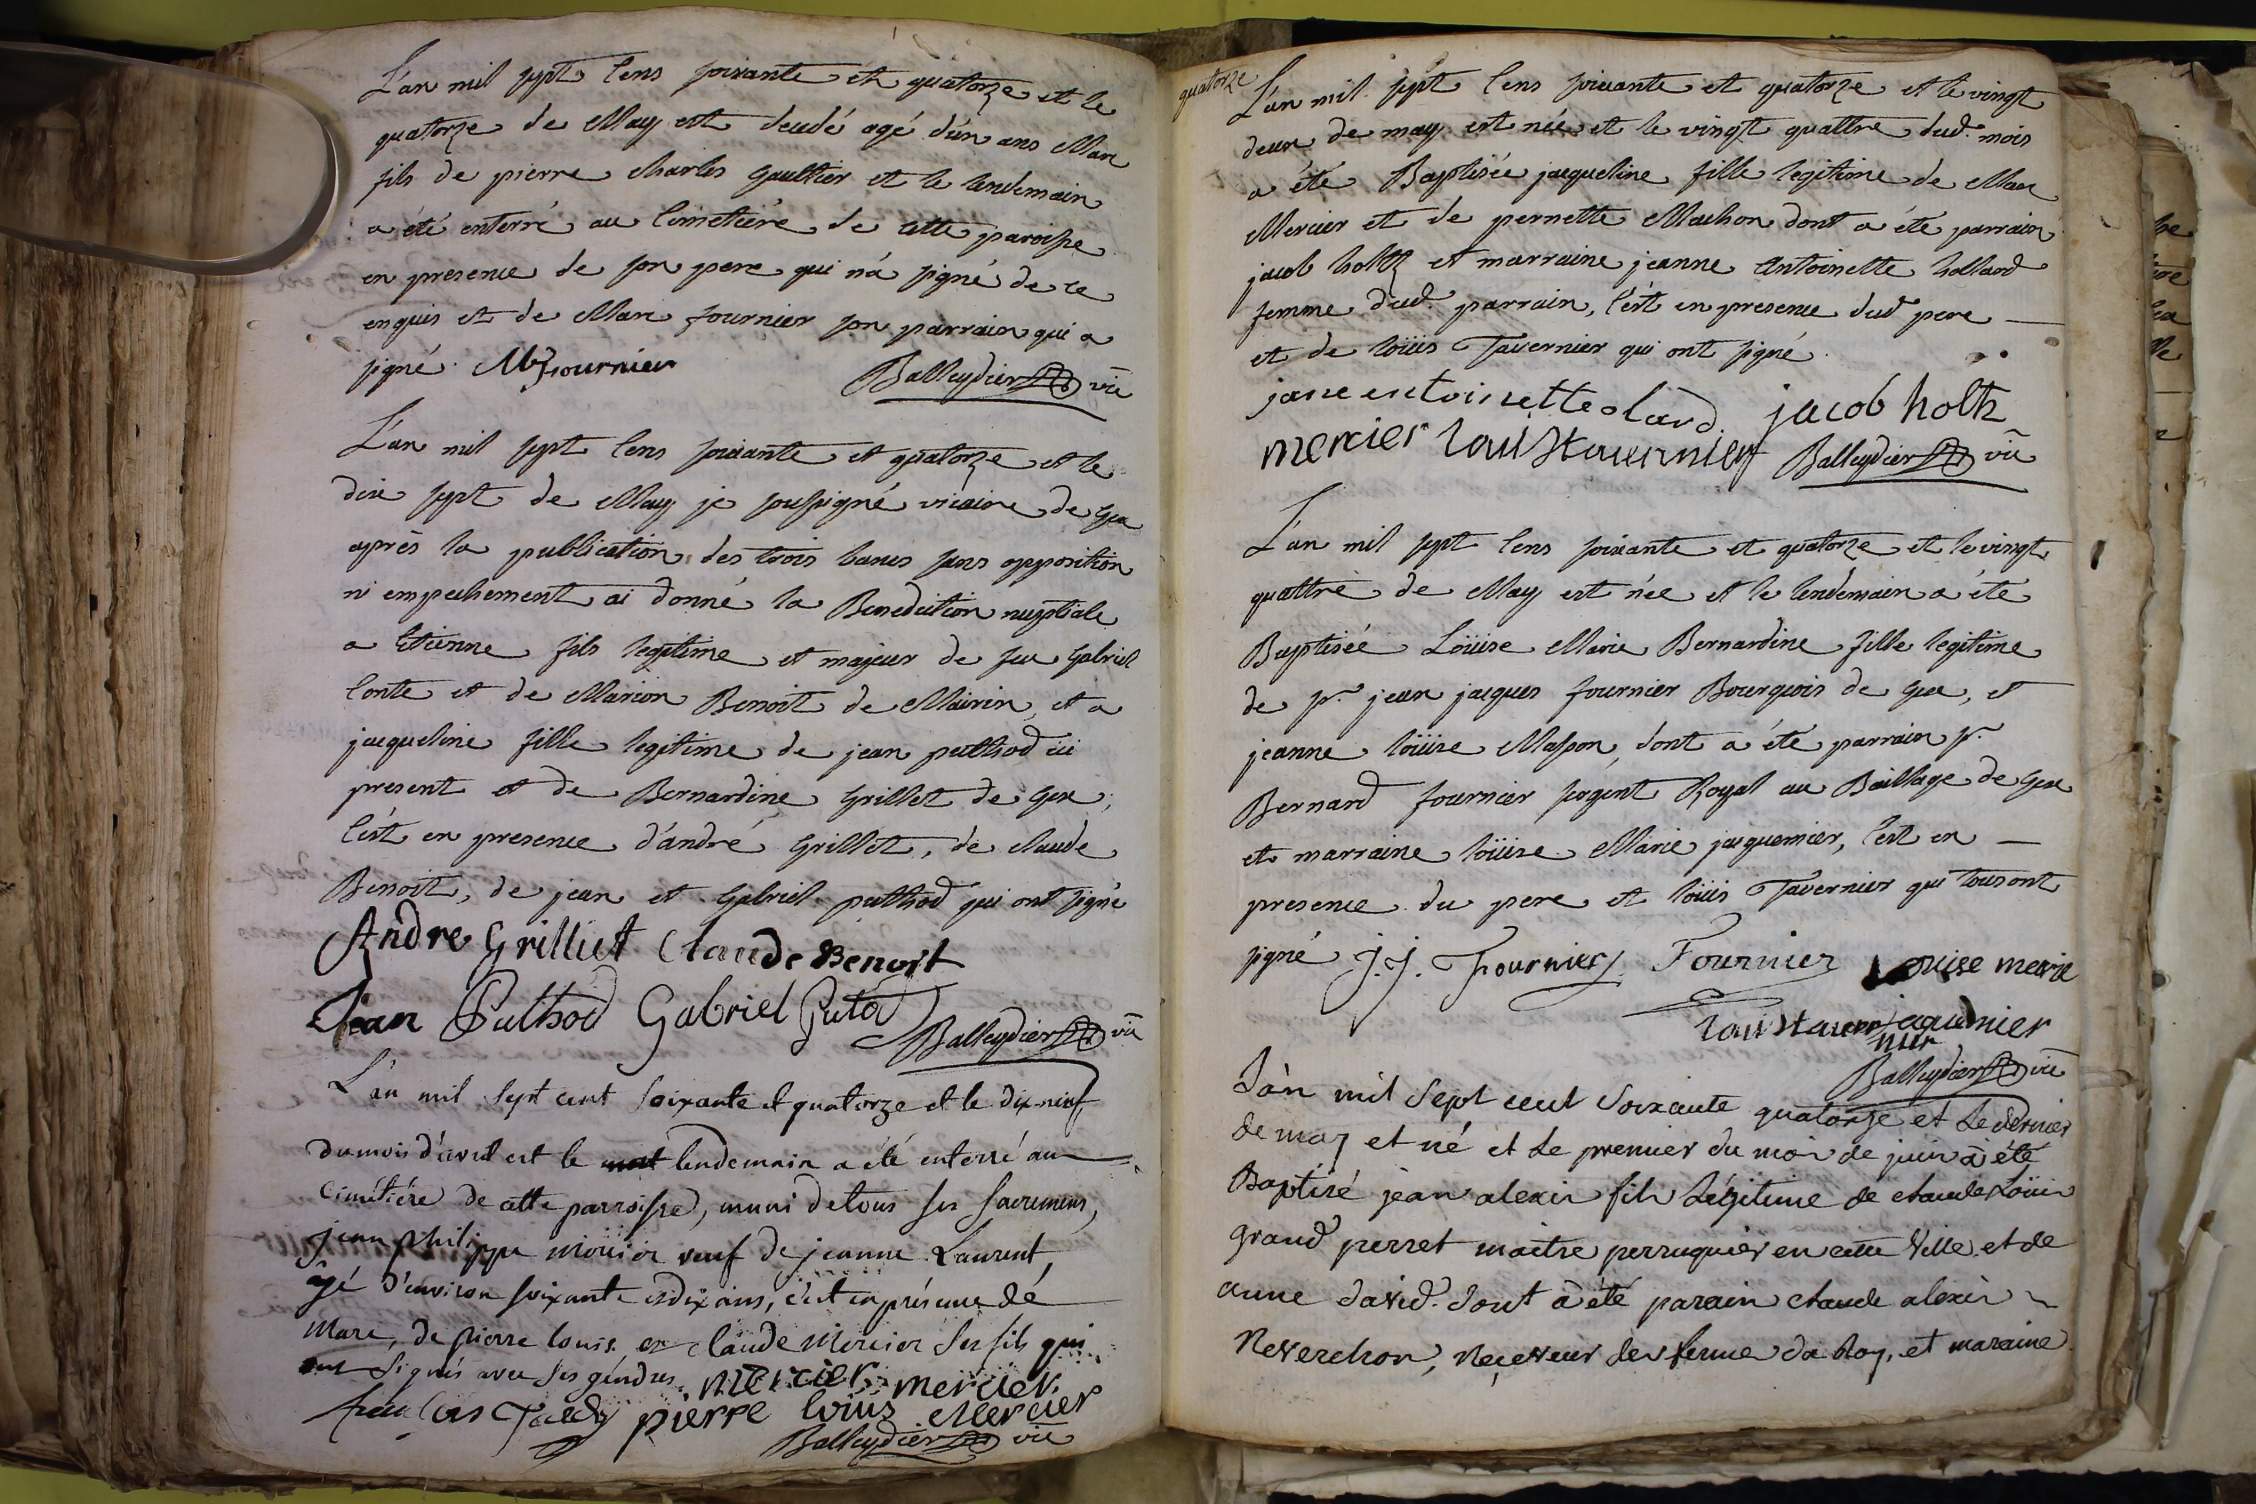 L'an mil sept Cens soixante et quatorze et le
quatorze de May est decedé agé d'un ans Marc
fils de pierre charles Gaultier et le lendemain
a été enterré au Cimetiere de cette paroisse
en presence de son pere qui n'a signé de ce
enquis et de Marc fournier son parrain qui a
signé. M fournier Balleydier vic
L'an mil sept Cens soixante et quatorze et le
dix sept de May je soussigné vicaire de Gex
après la publication des trois bancs sans opposition
ni empechement ai donné la Benediction nuptiale
a Etienne fils legitime et majeur de feu Gabriel
Conte et de Marion Benoit de Mairin, et a
jacqueline fille legitime de jean puthod ici
present et de Bernardine Grillet de Gex;
C'est en presence d'andré Grillet, de claude
Benoit, de jean et Gabriel puthod qui ont signé
Andre Grilliet Claude Benoit
Jean Puthod Gabriel Putod
Balleydier vic
L'an mil sept cent soixante et quatorze et le dix-neuf
du mois d'avril est le mort lendemain a été enterré au
Cimétiére de cette parroisse, muni de tous ses sacremens,
jean philippe Mercier veuf de jeanne Laurent,
âgé d'environ soixante et dix ans, c'est en présence de
Marc, de pierre louis et claude Mercier ses fils qui
ont signés avec ses gendres. mercier mercier
pierre loüis Mercier
Balleydier vic
quatorze
L'an mil sept Cens soixante et quatorze et le vingt
deux de may est née et le vingt quattre dud. mois
a été Baptisée jacqueline fille legitime de Marc
Mercier et de pernette Machon dont a été parrain
jacob holtz et marraine jeanne Antoinette hollard
femme dud. parrain, C'est en presence dud pere
et de loüis Tavernier qui ont signé.
jane entoinette olard. jacob holtz
mercier louis tavernier Balleydier vic
L'an mil sept Cens soixante et quatorze et le vingt
quattre de May est née et le lendemain a été
Baptisée Loüise Marie Bernardine fille legitime
de sr. jean jacques fournier Bourgeois de Gex, et
jeanne loüise Masson, dont a été parrain sr.
Bernard fournier sergent Royal au Baillage de Gex
et marraine loüise Marie jacquemier, C'est en
presence du pere et loüis Tavernier qui tous ont
signé J.J. Fournier Fournier Louise merie
louis taver jaquemier
nier
Balleydier vic
L'an mil sept cent soixante quatorze et le dernier
de may et né et le premier du mois de juin à été
Baptisé jean alexis fils légitime de claude Loüis
grand perret maitre perruquier en cette ville et de
anne david. dont à été parain claude alexis
Neverchon, Reçeveur des ferme du Roy, et maraine